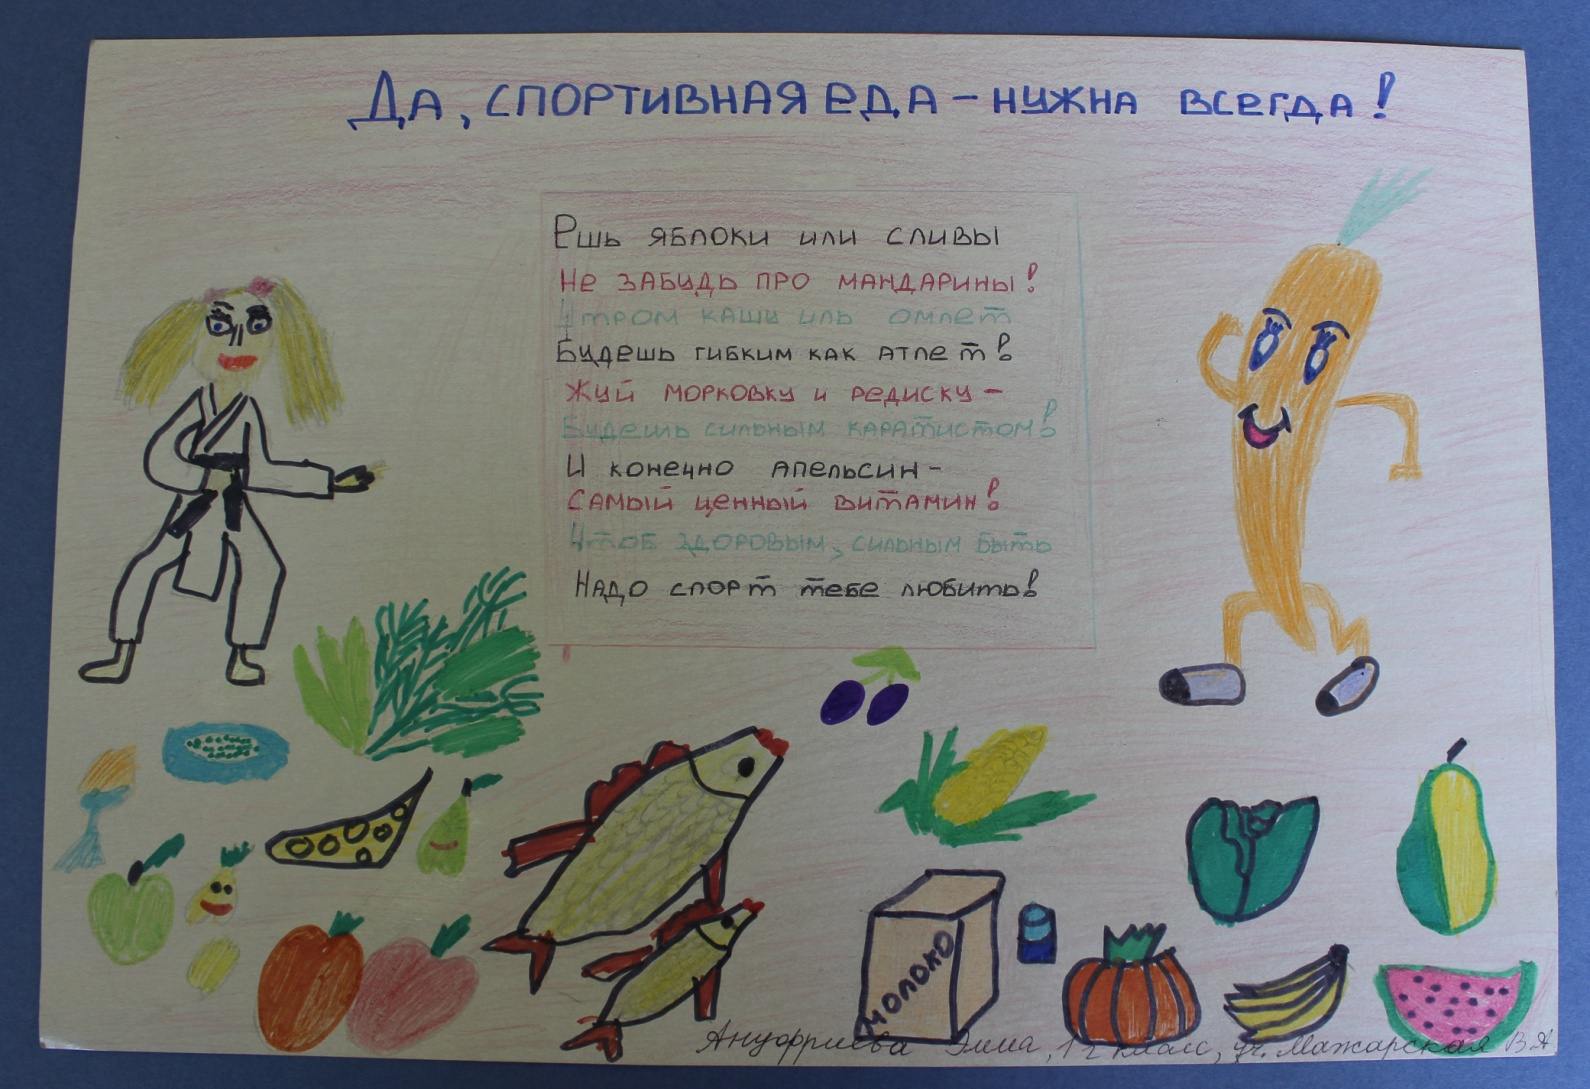 Да, спортивная еда - нужна всегда!
Ешь яблоки или сливы
Не забудь про мандарины!
Утром кашу иль омлет
Будешь гибким как атлет!
Жуй морковку и редиску -
Будешь сильным каратистом!
И конечно апельсин -
Самый ценный витамин!
Чтоб здоровым, сильным быть
Надо спорт тебе любить!
МОЛОКО
Ануфриева Элина, 1 г класс, уч. Мажарская В.А